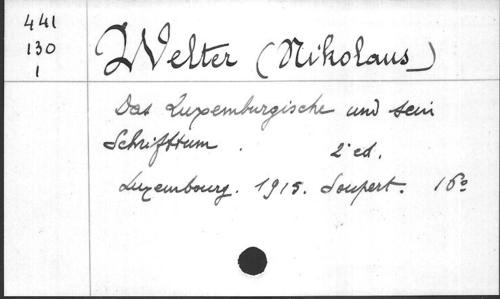 441
130
1
Welter (Nikolaus)
Das Luxemburgische und sein
Schrifttum . 2e ed.
Luxembourg. 1915. Soupert. 16°